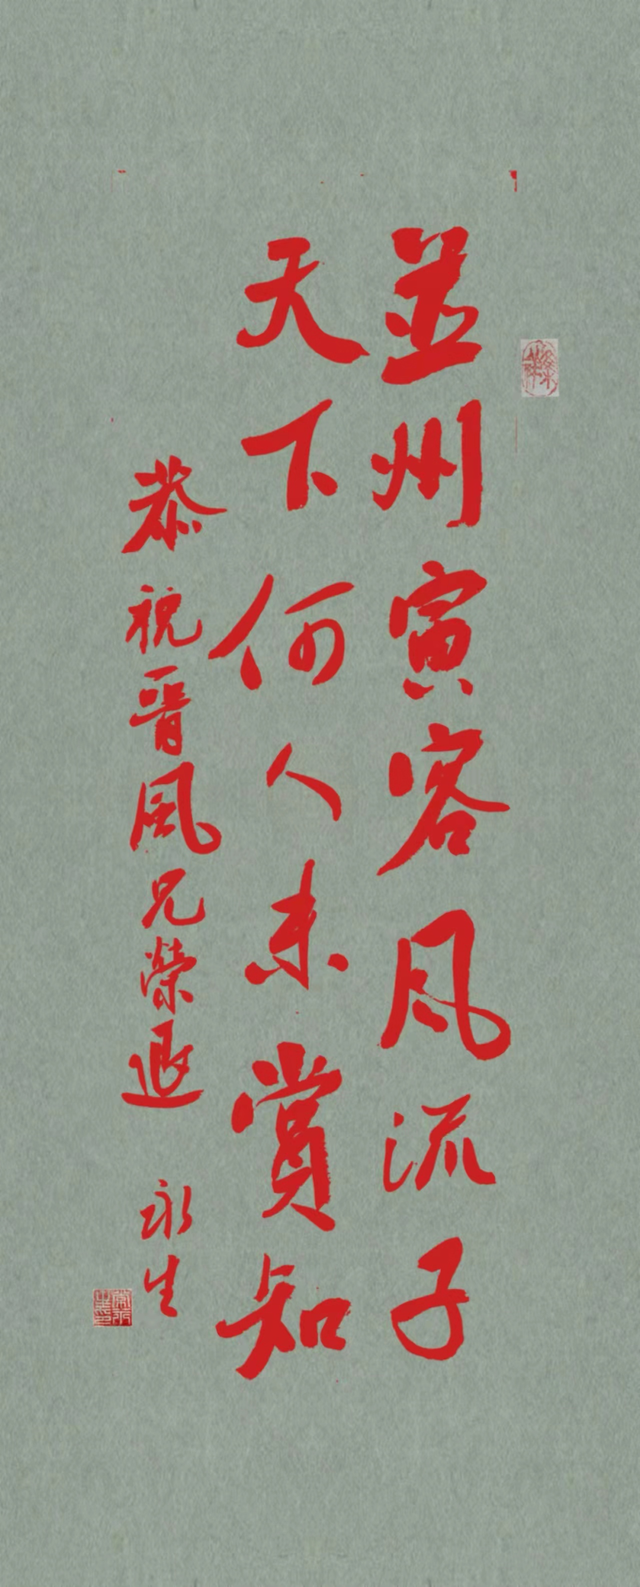 並州寅客風流子
天下何人未賞知
恭祝晋風兄榮退
永生